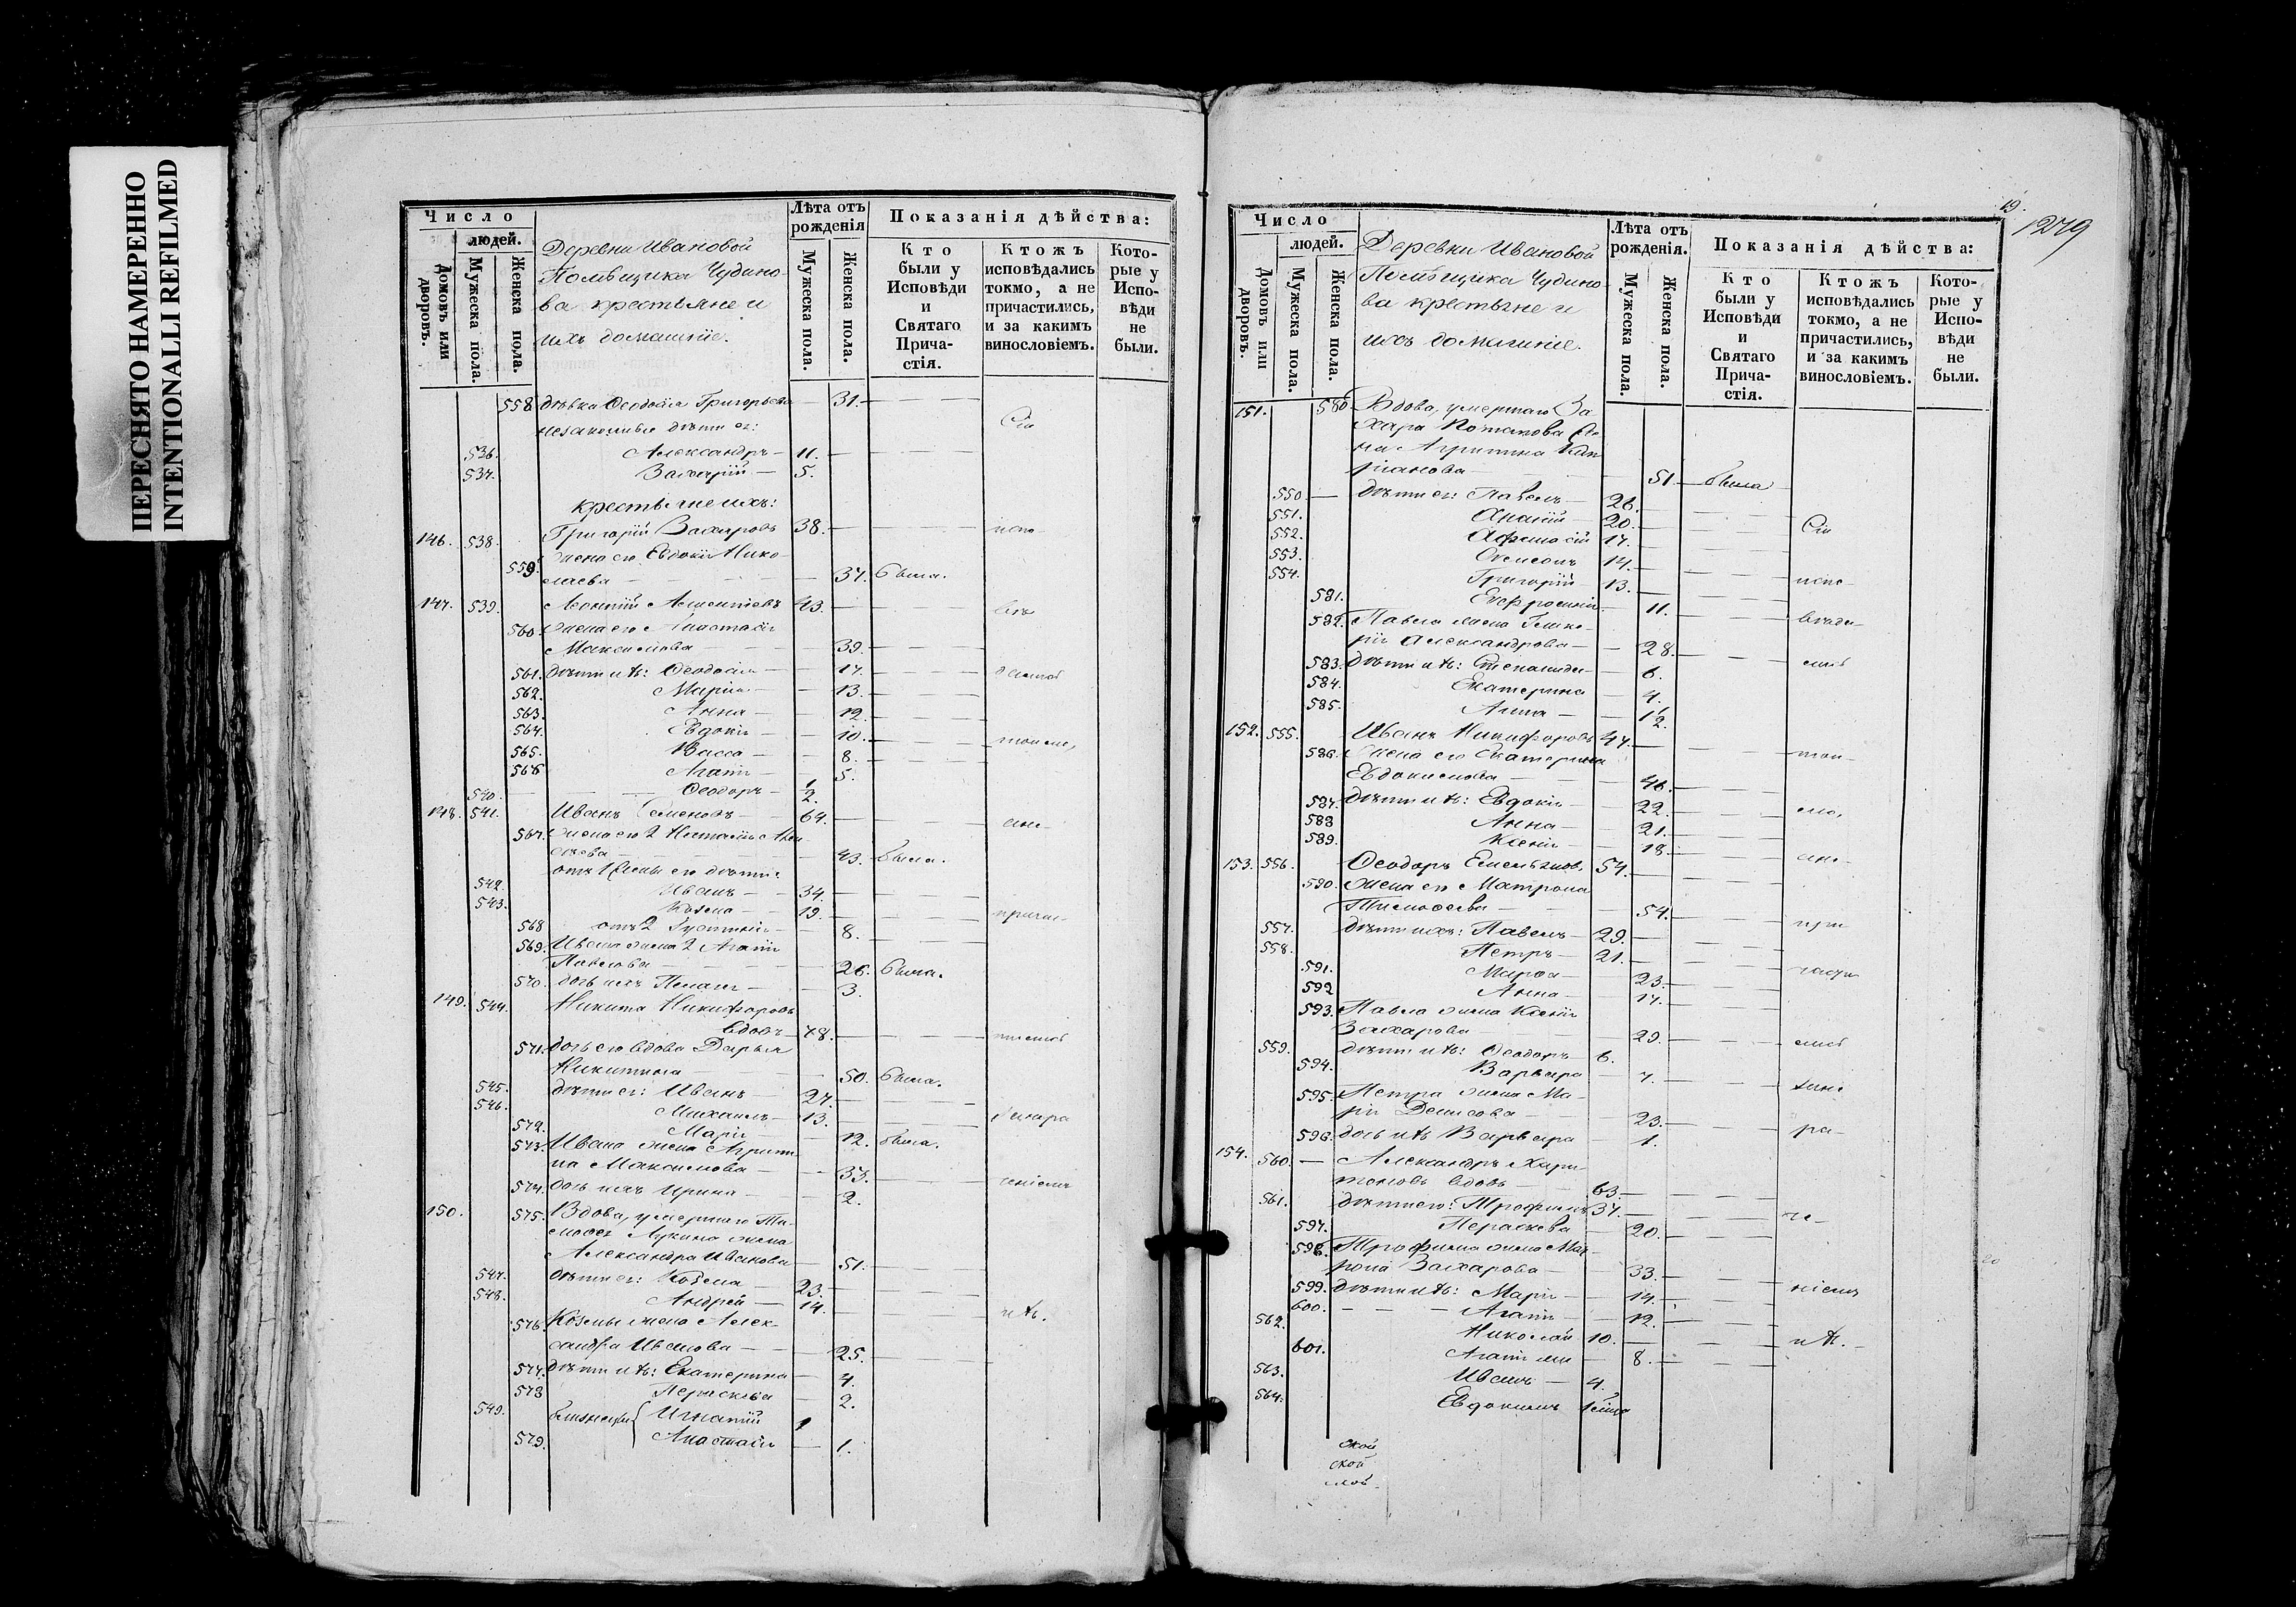 ПЕРЕСНЯТО НАМЕРЕННО
INTENTIONALLI REFILMED
Число
людей.
Домовъ или дворовъ.
Мужеска пола.
Женска пола.
Деревни Ивановой
Помѣщика Чудино-
ва крестьяне и
ихъ домашніе.
Лѣта отъ рожденія
Мужеска пола.
Женска пола.
Показанія дѣйства:
Кто были у Исповѣди и Святаго Прича- стія.
Ктожъ исповѣдались токмо, а не причастились, и за какимъ винословіемъ.
Кото- рые у Испо- вѣди не были.
558 дѣвка Ѳеодосія Григорьева — 31. —
дѣти ея: Сіи
536. Александръ — 11. —
537. Захарій — 5.
крестьяне ихъ:
146. 538. Григорій Захаровъ 38. — испо-
559. жена его Евдокія Нико-
лаева — 37. была.
147. 539. Леонтій 43. —
560. жена его Анастасія
Максимова — 39. —
561. дѣти ихъ: Ѳеодосія — 17. —
562. Марія — 13. —
563. Анна — 12. —
564. Евдокія — 10. — токмо,
565. Васса — 8. —
566 Агапія — 5.
540. Ѳеодоръ — 1/2.
148. 541. Иванъ Семеновъ — 64. — а не-
567. жена его 2
43. была.
отъ 1 жены его дѣти:
542. Иванъ — 34. —
543. Козма — 19. — причас-
568 отъ 2 — 8. —
569. Ивана жена 2 Агапія
Павлова — 26. была.
570. дочь ихъ Пелагія — 3.
149. 544. Никита Никифоровъ
вдовъ — 78. — тились
571. дочь его вдова Дарья
Никитина — 50. была.
545. дѣти ея: Иванъ — 27. —
546. Михаилъ — 13. —
572. Марія — 12. была.
573. Ивана жена Агрипи-
на Максимова — 33. — ніемъ
574. дочь ихъ Ирина — 2.
150. 575. Вдова, умершаго Ти-
моѳея Лукина жена
Александра Иванова — 51. —
547. дѣти ея: Козма — 23. —
548. Андрей — 14. — ихъ.
576. Козмы жена Алек-
сандра Иванова — 25. —
577. дѣти ихъ: Екатерина — 4.
578 Параскева — 2.
549. близнецы { Игнатій 1
579. Анастасія — 1.
19.
1279
Число
людей.
Домовъ или дворовъ.
Мужеска пола.
Женска пола.
Деревни Ивановой
Помѣщика Чудино-
ва крестьяне и
ихъ домашніе.
Лѣта отъ рожденія.
Мужеска пола.
Женска пола.
Показанія дѣйства:
Кто были у Исповѣди и Святаго Прича- стія.
Ктожъ исповѣдались токмо, а не причастились, и за какимъ винословіемъ.
Кото- рые у Испо- вѣди не были.
151. 580 Вдова, умершаго За-
хара Потапова же-
на Агрипина
51 — была
550 — дѣти ея: Павелъ — 26. —
551. Ананій — 20. — Сіи
552. 17. —
553. Симеонъ 14. —
554. Григорій — 13. — испо-
581. Евфросинія — 11. —
582. Павла жена Глике-
рія Александрова — 28. —
583. дѣти ихъ: Степанида — 6.
584. Екатерина — 4.
585. Анна — 1 1/2.
152. 555. Иванъ Никифоровъ 47. — ток-
586. Жена его Екатерина
Евдокимова — 46. —
587. дѣти ихъ: Евдокія — 22. — мо,
588 Анна — 21. —
589. Ксенія — 18. — а не-
153. 556. Ѳеодоръ Емельяновъ 54. —
590. жена его Матрона
Тимоѳеева — 54. — при
557. дѣти ихъ: Павелъ — 29. —
558. Петръ — 21. —
591. Марѳа — 23. —
592 Анна — 17. —
593. Павла жена Ксенія
Захарова — 29. —
559. дѣти ихъ: Ѳеодоръ — 6.
594. Варвара 7. —
595. Петра жена Ма-
рія Денисова — 23. — ра-
596. дочь ихъ Варвара 1.
154. 560. — Александръ Хари-
тоновъ вдовъ — 63. —
561. дѣти его: Трофимъ 37. —
597. Параскева — 20. —
598. Трофима жена Мат-
рона Захарова — 33. —
599. дѣти ихъ: Марія — 14. — ніемъ
600. Агапія — 12. —
562. Николай 10. — ихъ.
601. 8. —
563. Иванъ — 4.
564. Евдокимъ